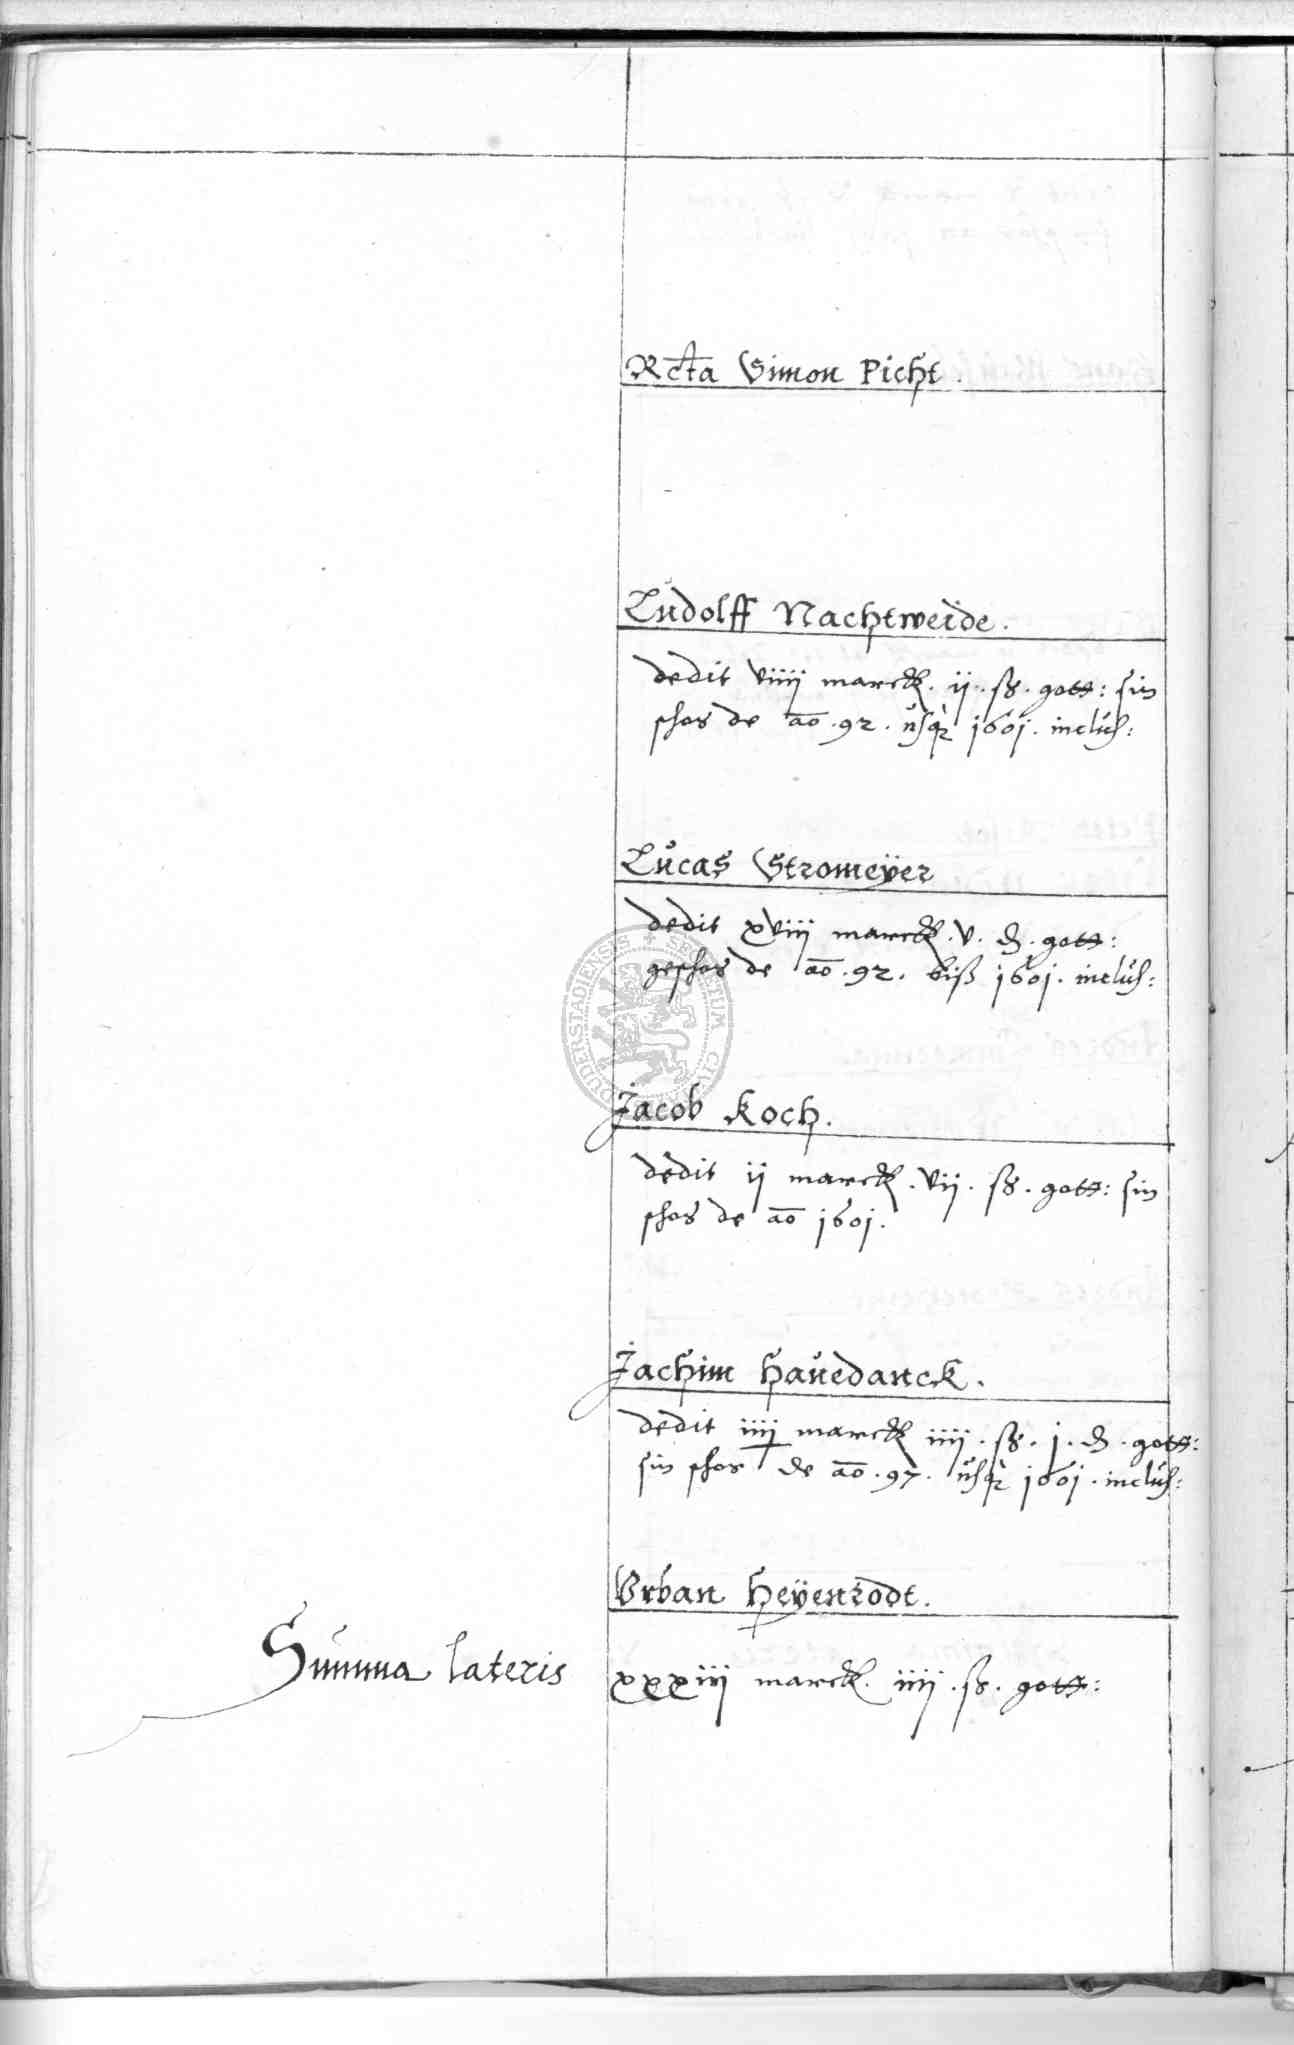 Rcta Simon Picht.
Ludolff Nachtweide.
dedit viiij marck. ij. ß. gott: sin
schos de ao. 92. usq 1601. inclus:
Lucas Stromeÿer
dedit xviij marck. v. ₰. gott:
geschos de ao. 92. biß 1601. inclus:
Jacob Koch.
dedit ij marck. vij. ß. gott: sin
schos de ao 1601.
Jachim Hauedanck.
dedit iiij marck iiij. ß. j. ₰. gott:
sin schos de ao. 97. usq 1601. inclus:
Urban Heÿenrodt.
Summa lateris xxxiij marck. iiij. ß. gott: